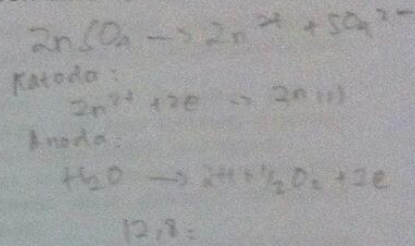 ZnSO₄ -> Zn²⁺ + SO₄²⁻
Katoda :
Zn²⁺ + 2e -> Zn (s)
Anoda :
H₂O -> 2H + ½O₂ + 2e
12,8 =